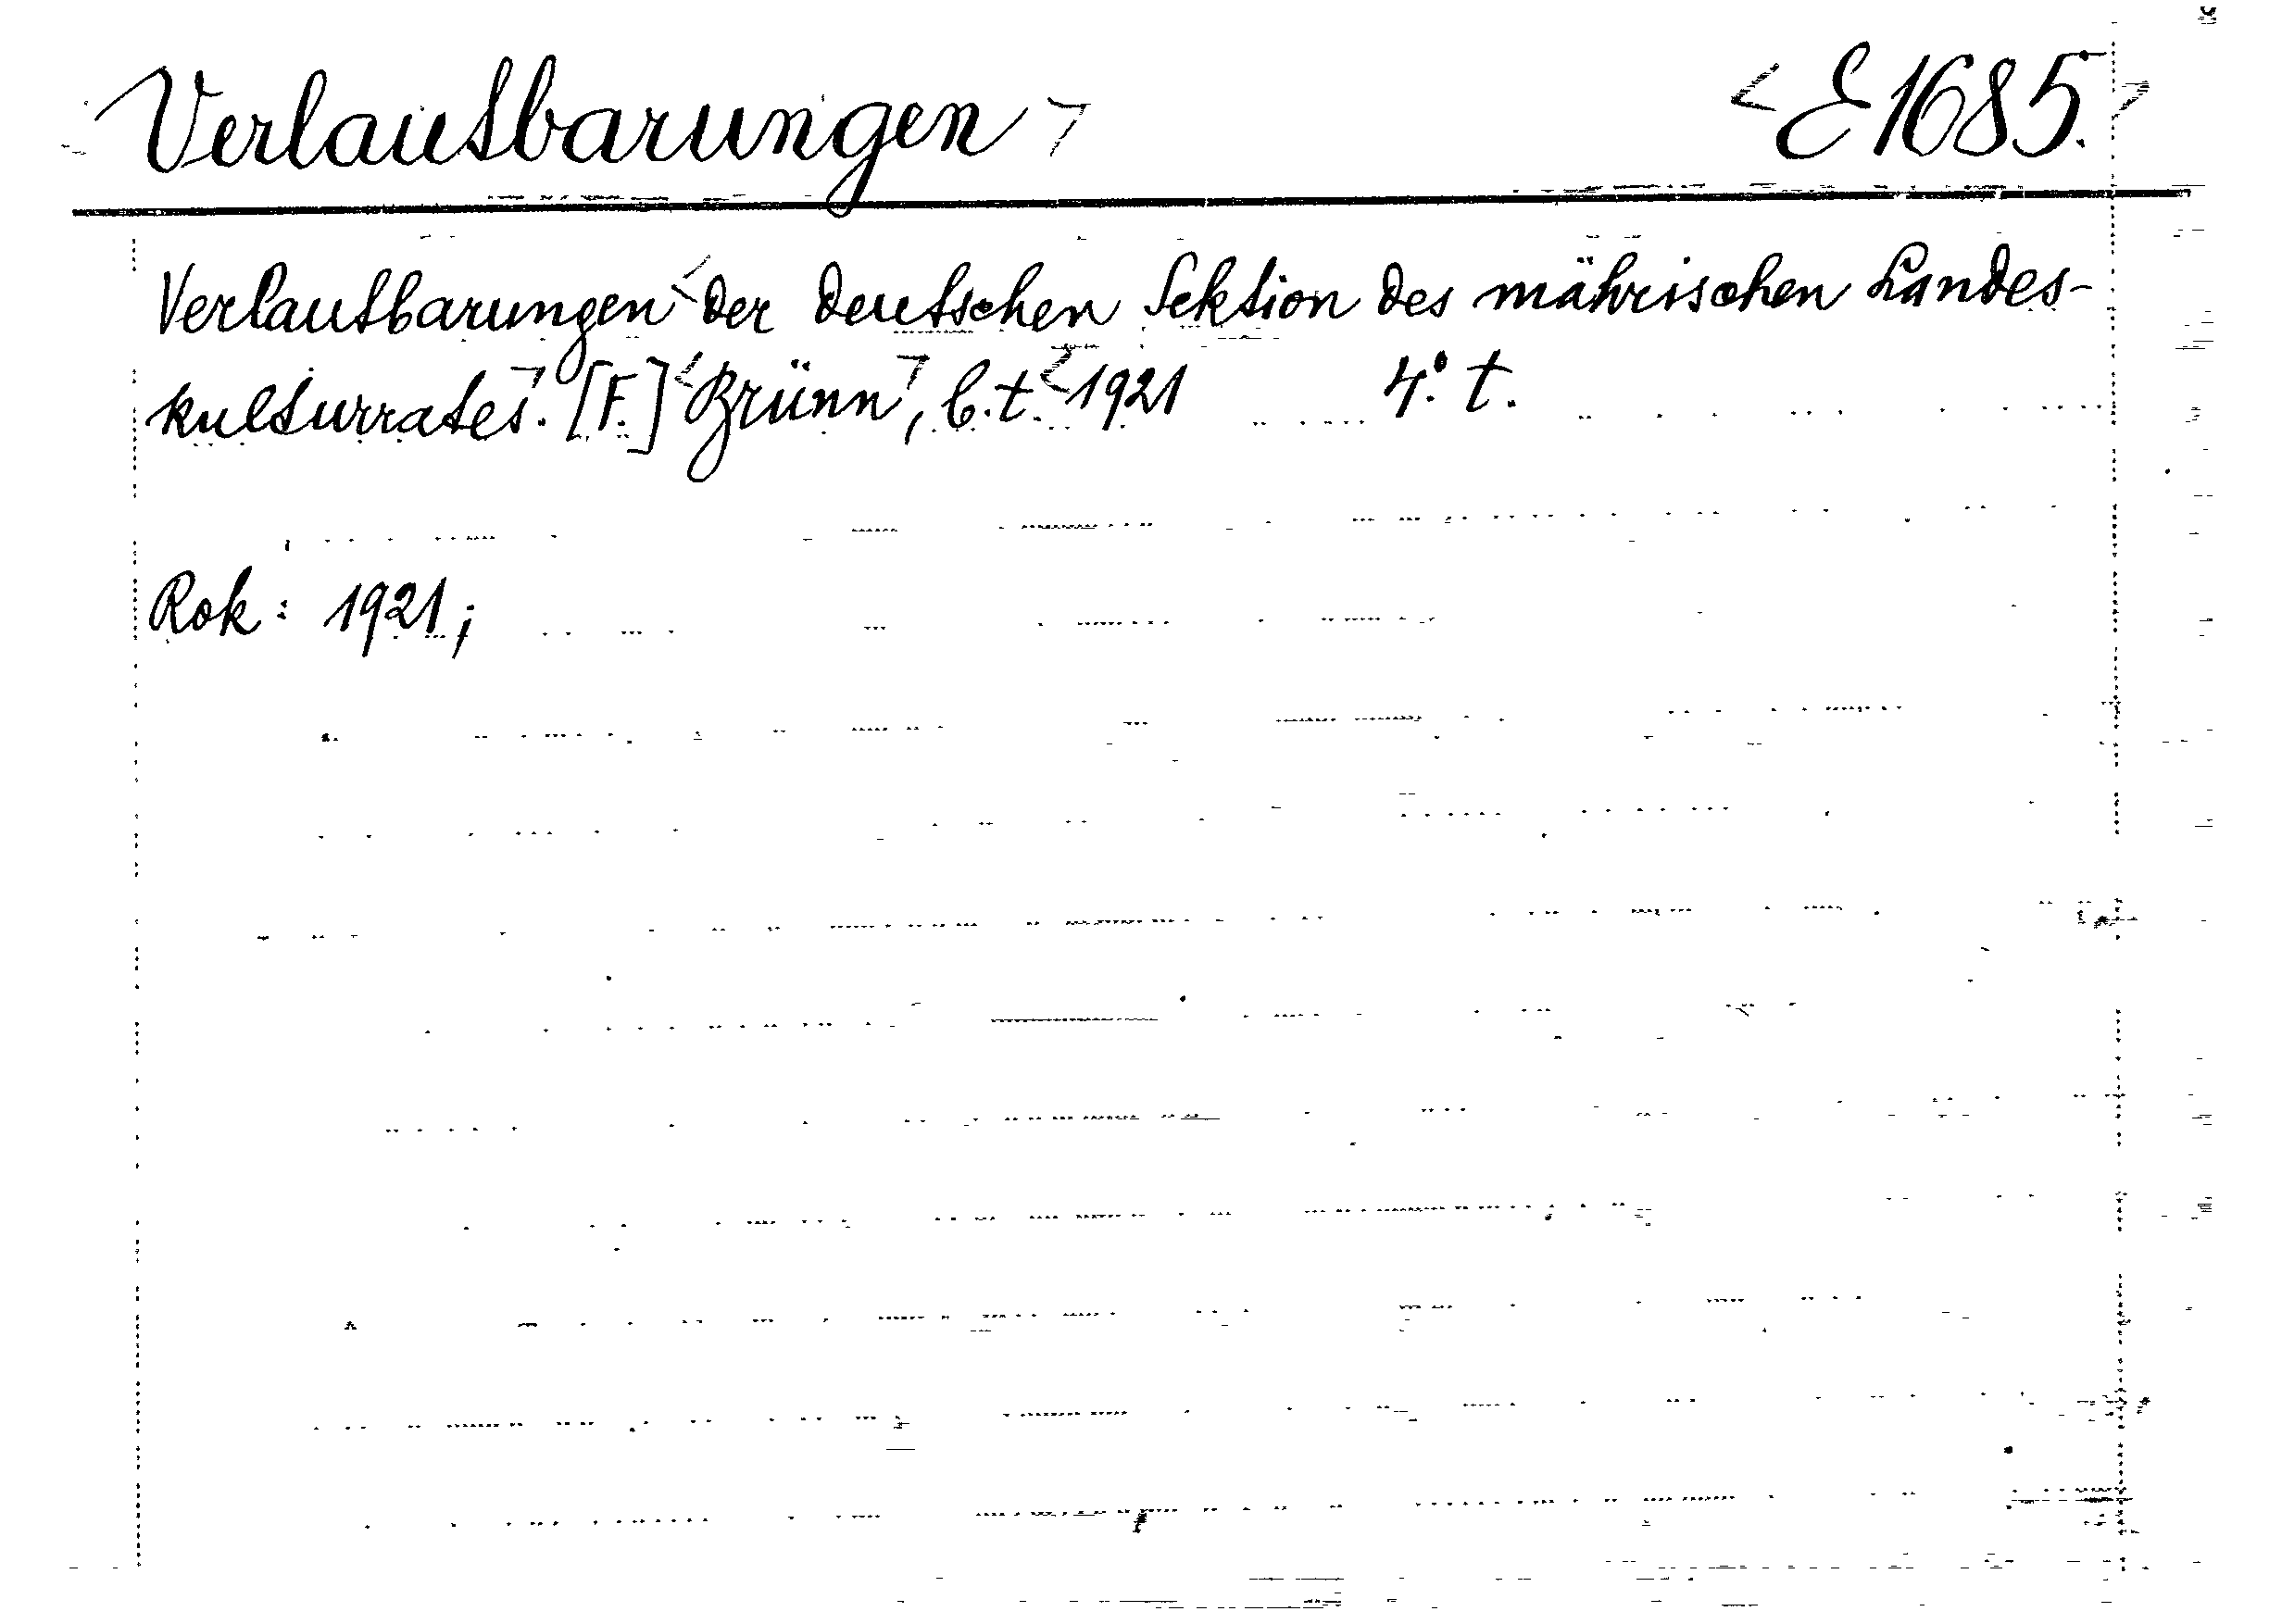 Verlautbarungen <E1685.>
Verlautbarungen <der deutschen Sektion des mährischen Landes-
kulturrates>. [F.] <Brünn>, b.t. <1921 4.° t.
Rok: 1921;